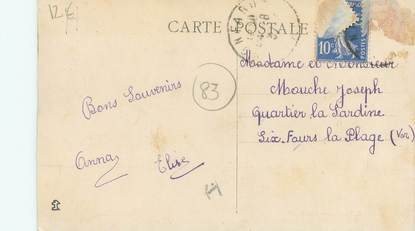 12€
CARTE POSTALE
10c
Madame et Monsieur
Mouche Joseph
Quartier la Sardine
Six-Fours la Plage (Var)
Bons Souvenirs
83
Anna Elise